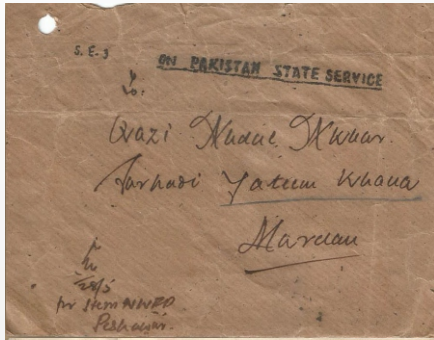 S.E.3
ON PAKISTAN STATE SERVICE
To.
Qazi Abdul
Sarhadi Yateem Khana
Mardan
28/5
Peshawar.